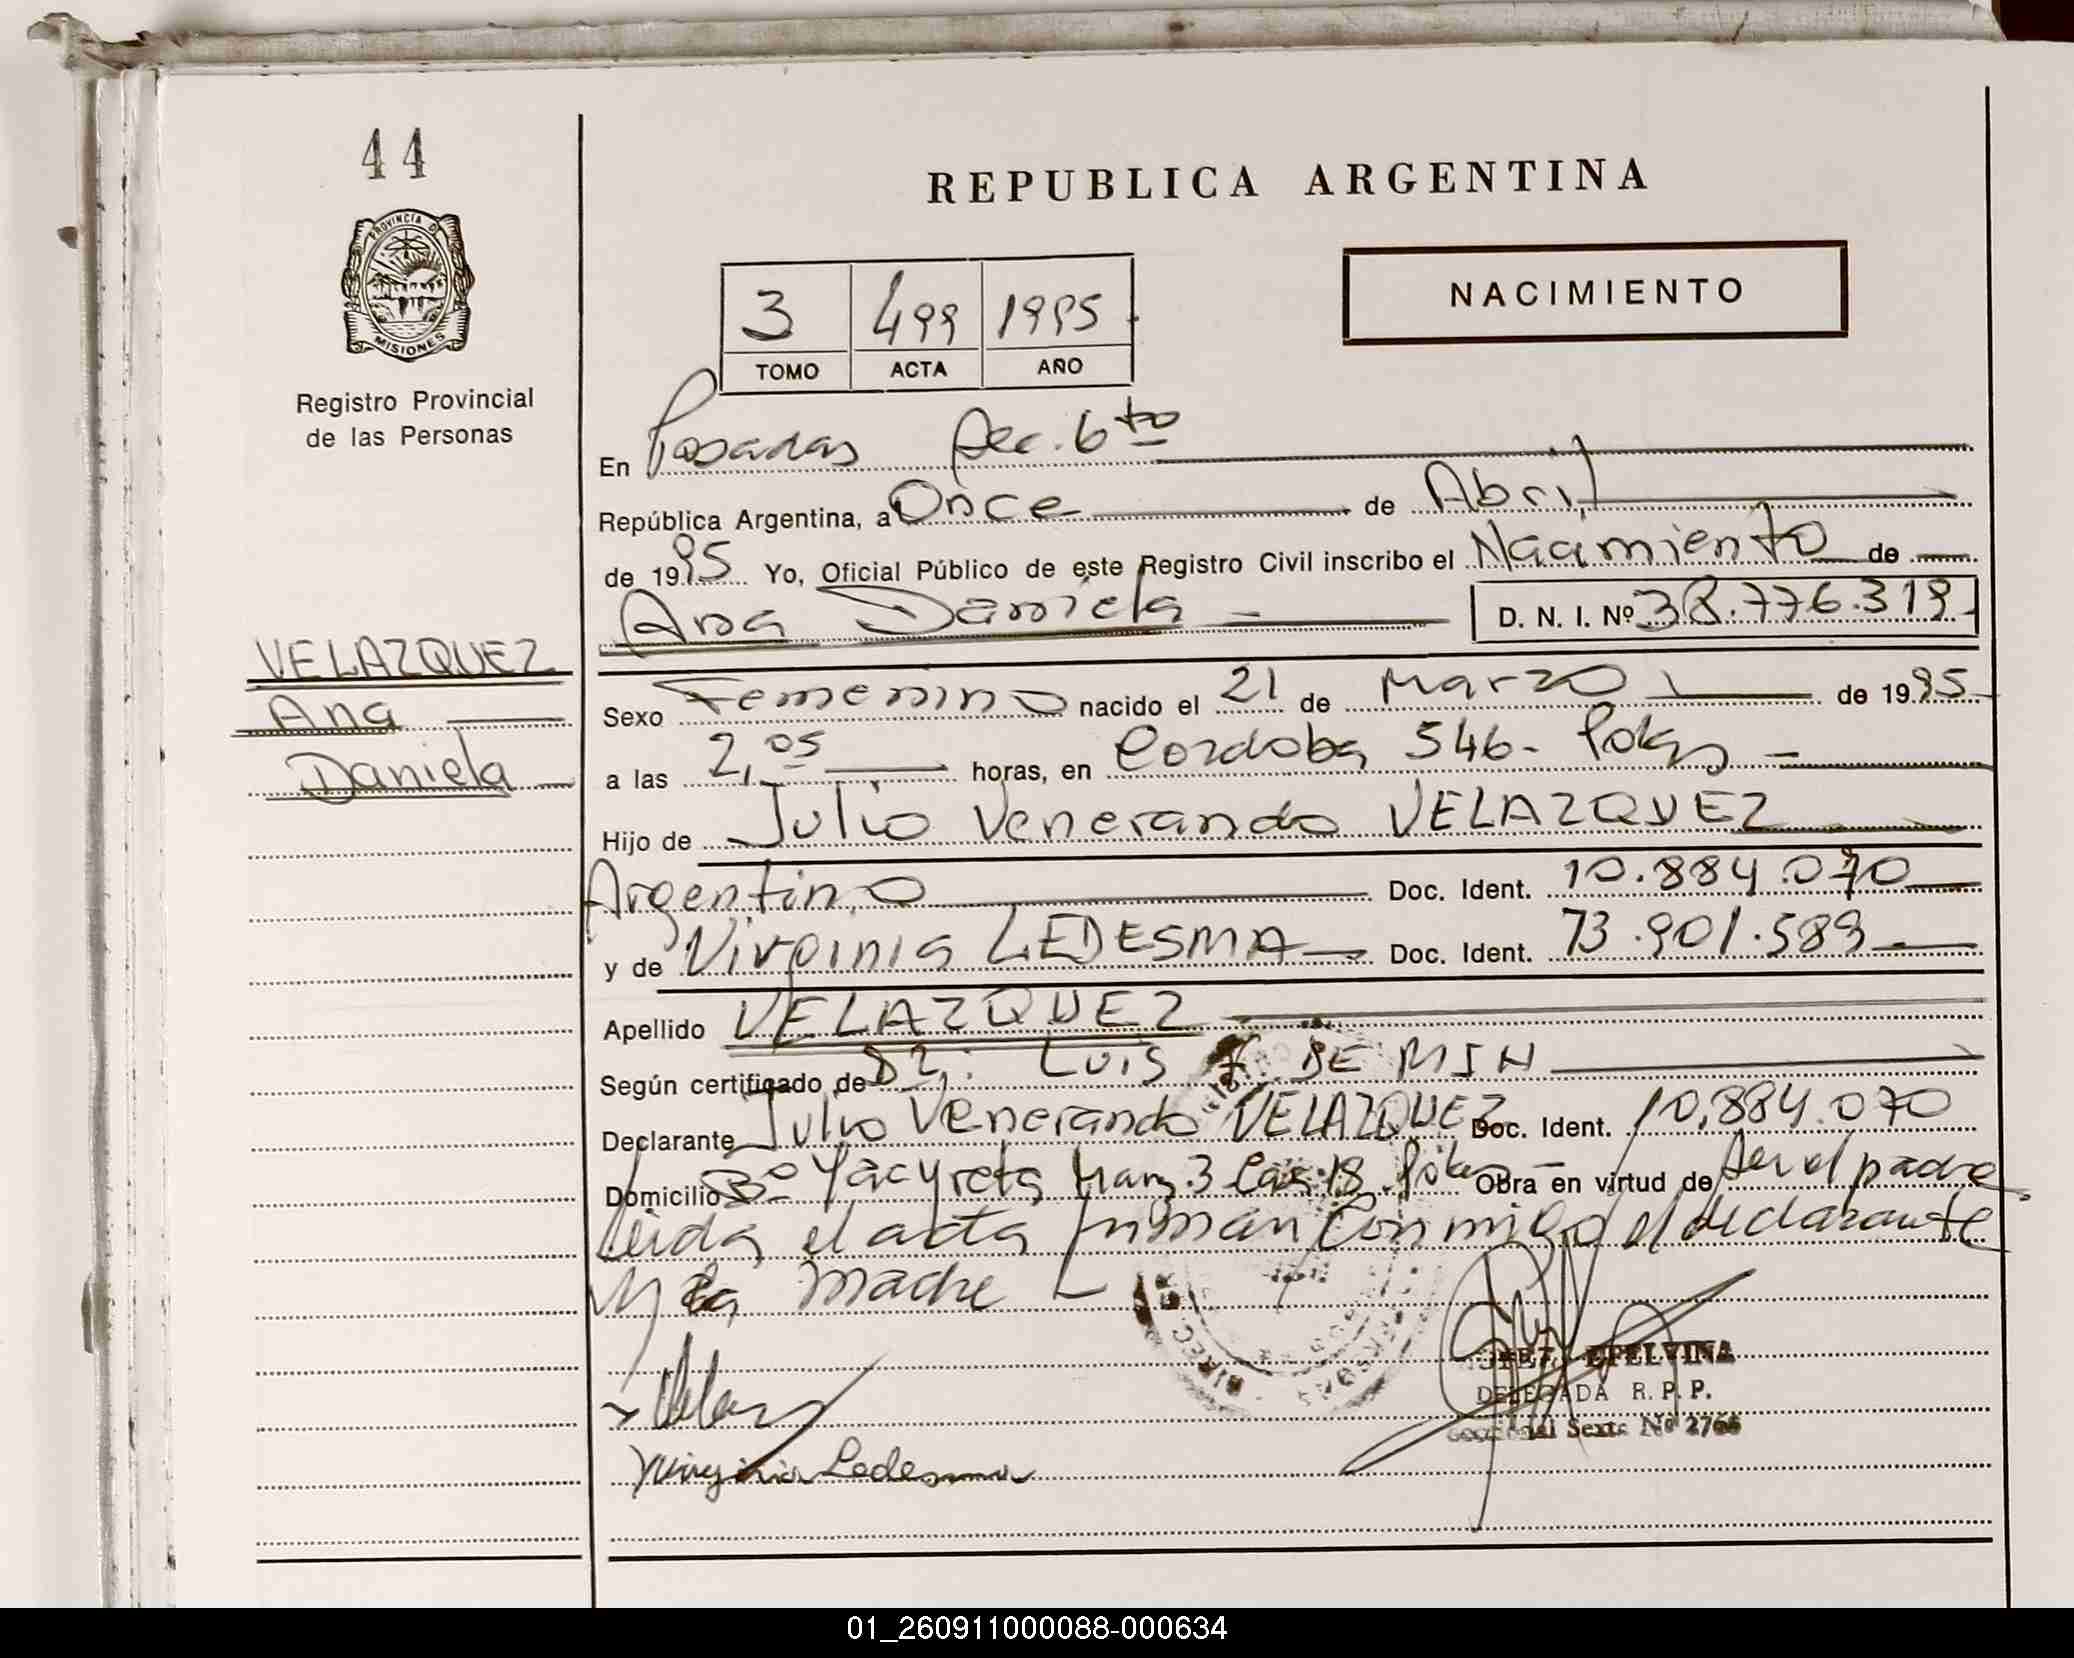 44
PROVINCIA DE
MISIONES
Registro Provincial
de las Personas
REPUBLICA ARGENTINA
NACIMIENTO
3 499 1995
TOMO ACTA AÑO
En Posadas Sec. 6to
República Argentina, a Once de Abril
de 1995 Yo, Oficial Público de este Registro Civil inscribo el Nacimiento de
Ana Daniela D. N. I. Nº 38.776.319
VELAZQUEZ
Ana
Daniela
Sexo Femenino nacido el 21 de Marzo de 1995
a las 2,05 horas, en Cordoba 546- Pdas
Hijo de Julio Venerando VELAZQUEZ
Argentino Doc. Ident. 10.884.070
y de Virginia LEDESMA Doc. Ident. 13.901.589
Apellido VELAZQUEZ
Según certificado de Dr. Luis
Declarante Julio Venerando VELAZQUEZ Doc. Ident. 10.884.070
Domicilio Bº Yacyreta Manz. 3 Cas. 18 Pdas Obra en virtud de ser el padre
Leida el acta firman conmigo el declarante
y la madre
DELEGADA R. P. P.
Sexta Nº 2766
Virginia Ledesma
01_260911000088-000634